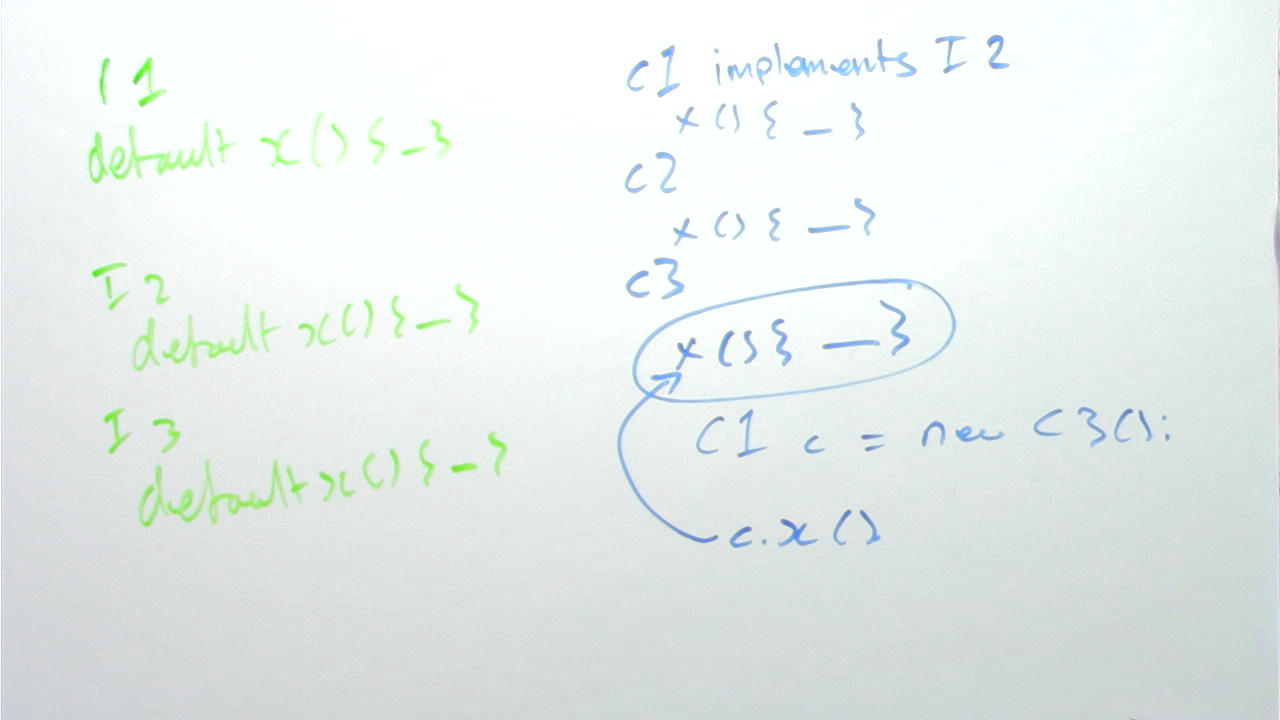 I 1
default x() { _ }
I 2
default x() { _ }
I 3
default x() { _ }
C1 implements I 2
x() { _ }
C2
x() { _ }
C3
x() { _ }
C1 c = new C3();
c.x()